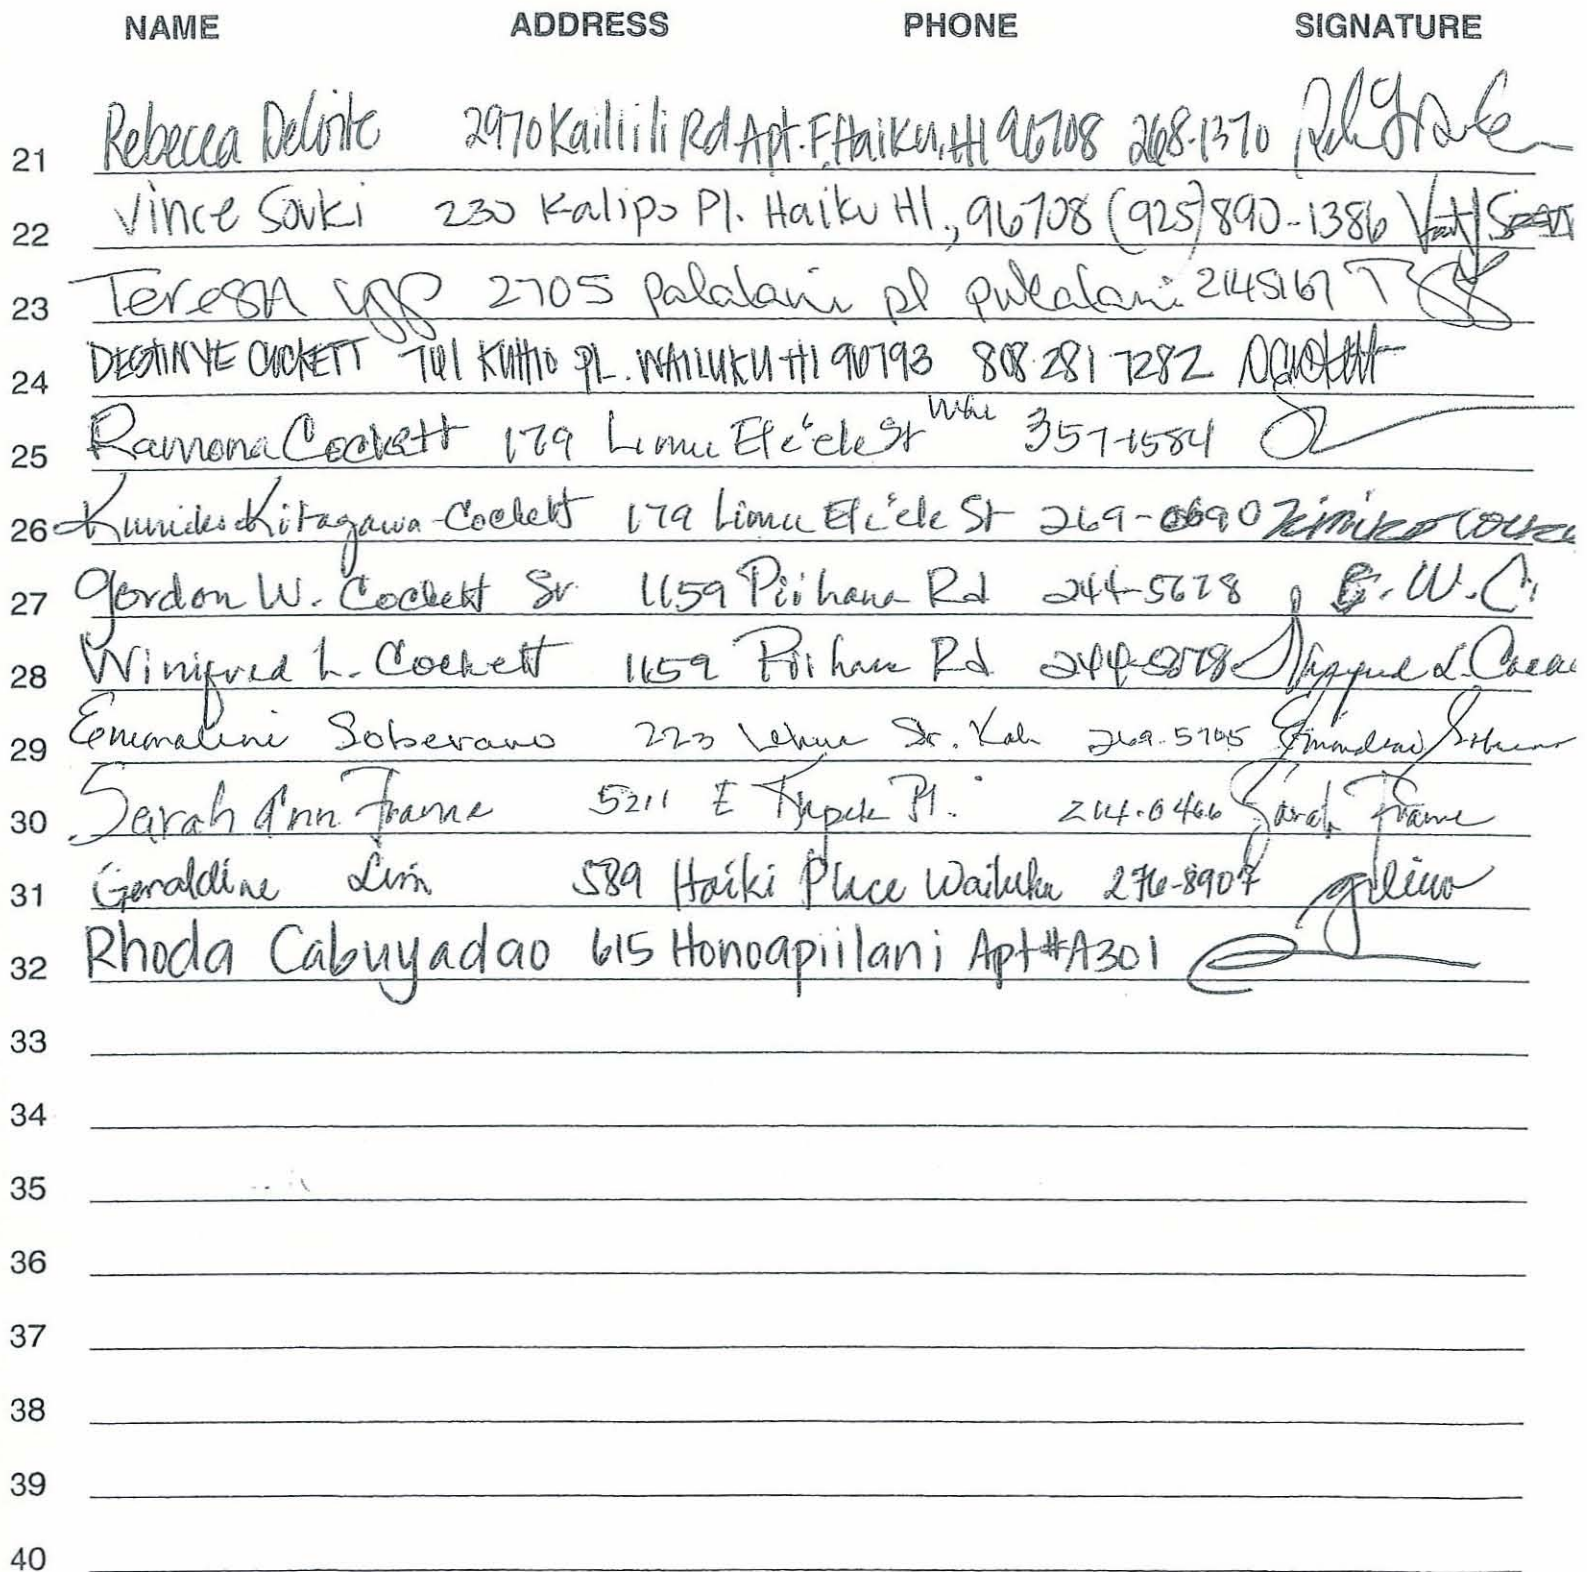 NAME ADDRESS PHONE SIGNATURE
21 Rebecca 2970 Kailiili Rd Apt. F Haiku, HI 96708 268-1370
22 Vince Souki 230 Kalipo Pl. Haiku HI., 96708 (925) 890-1386
23 Teresa 2705 palalani pl pukalani 2145167
24 DESTINYE COCKETT 741 KUHIO PL. WAILUKU HI 96793 808-281 7282
25 Ramona Cockett 179 Limu Ele'ele St 357-1584
26 Kitagawa-Cockett 179 Limu Ele'ele St 269-0690
27 Gordon W. Cockett Sr 1159 Piihana Rd G. W. C.
28 Winifred L. Cockett 1159 Piihana Rd
29 Emmaline Soberano 223 St. Kah
30 Sarah Ann Frame E Pl. Sarah Frame
31 Geraldine Lim 589 Haiki Place Wailuku 276-8907
32 Rhoda Cabuyadao 615 Honoapiilani Apt #A301
33
34
35
36
37
38
39
40